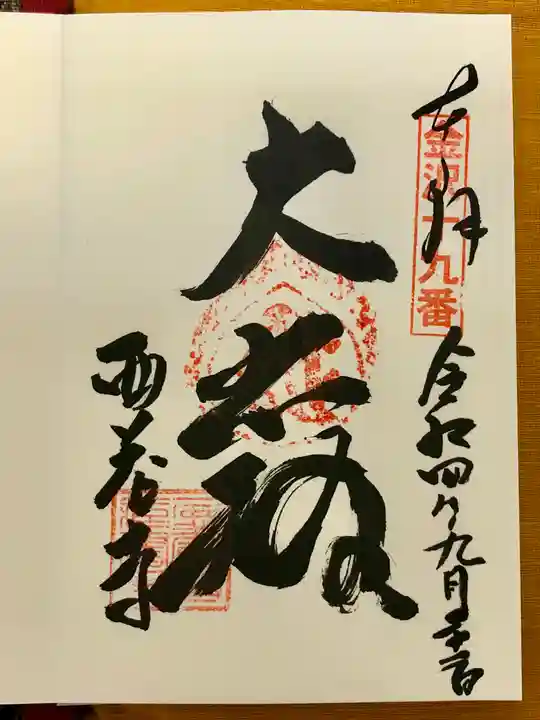 奉拝
金沢十九番
令和四年九月
大悲殿
西養寺